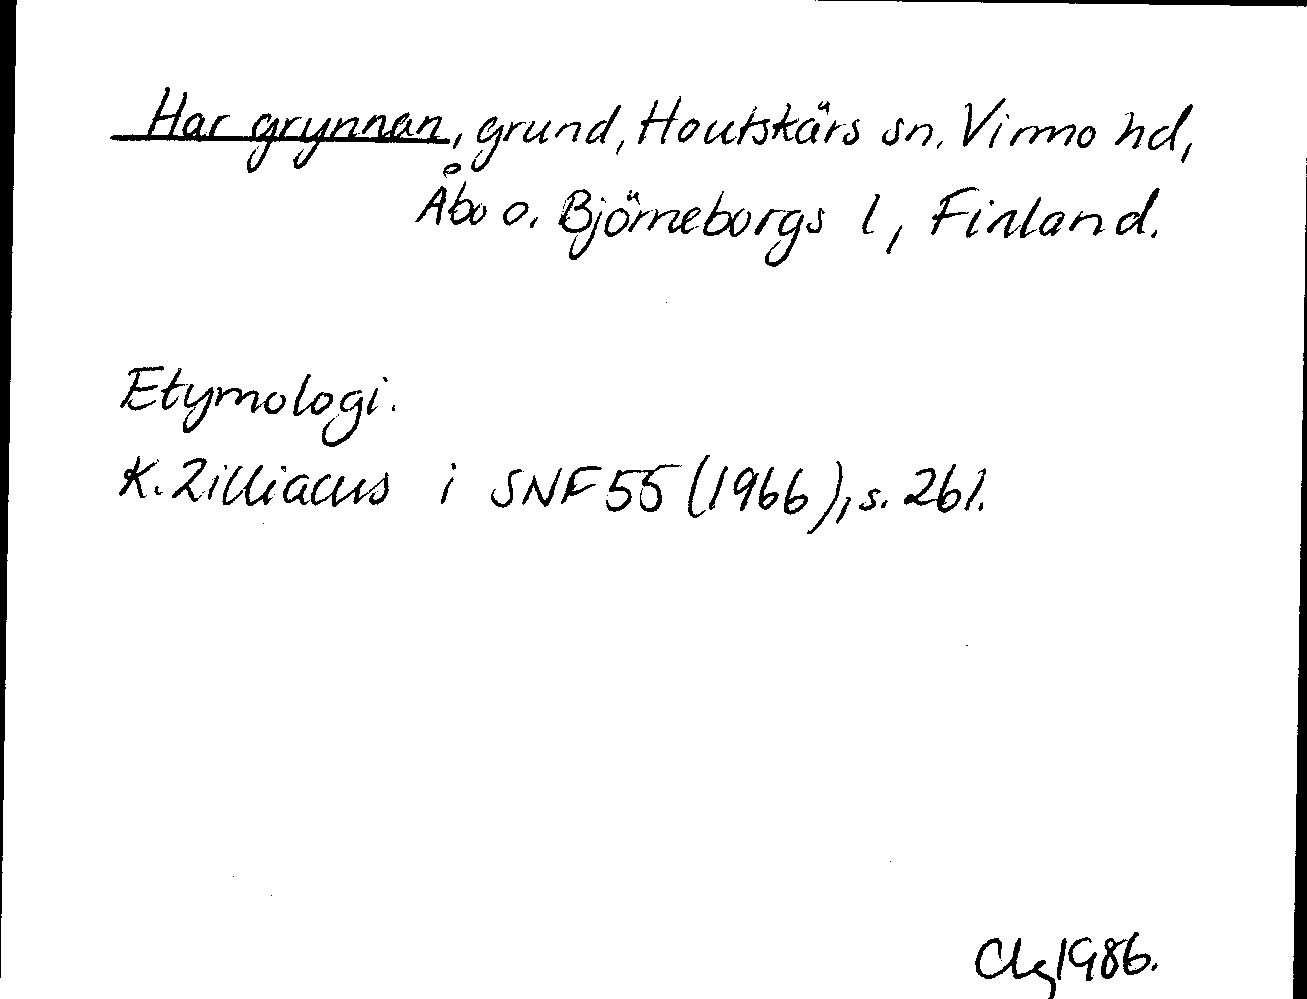 Har grynnan, grund, Houtskärs sn. Virmo hd,
Åbo o. Björneborgs l, Finland.
Etymologi.
K. Zilliacus i SNF 55 (1966), s. 261.
Clg 1986.